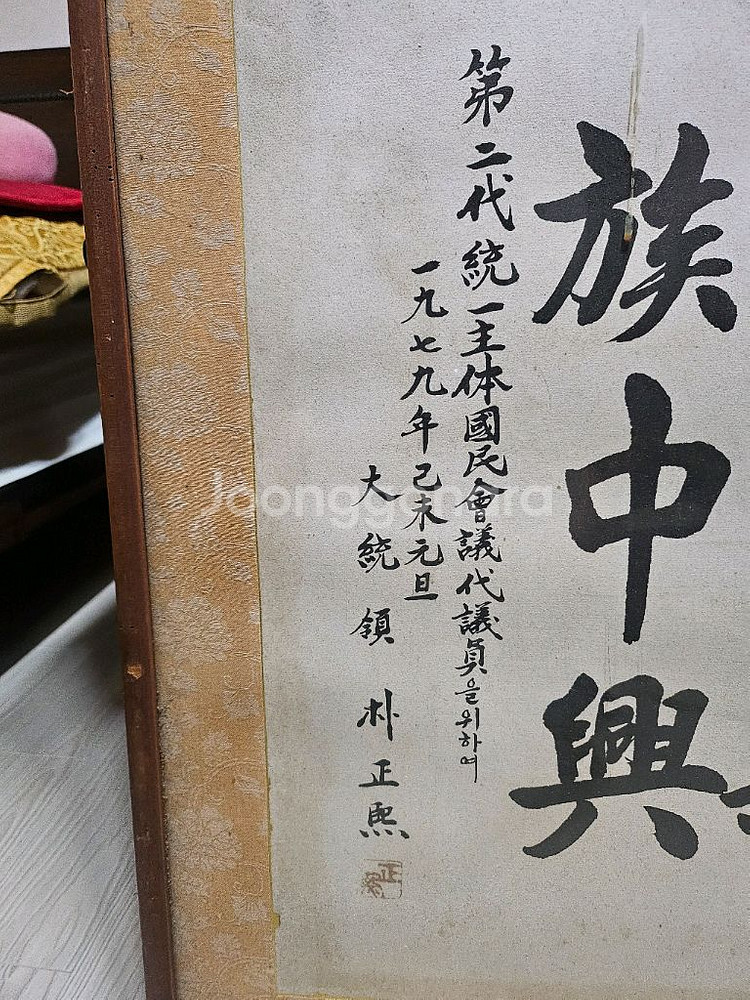 族中興
第二代統一主体國民會議代議員을위하여
一九七九年己未元旦
大統領 朴正熙
Joonggonara